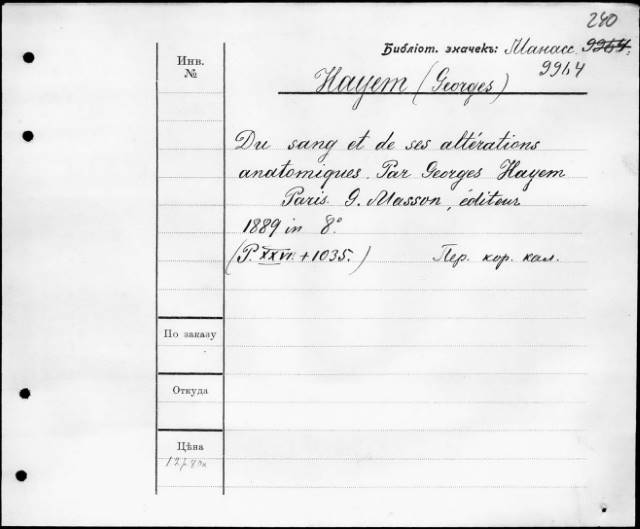 240
Библіот. значекъ: Манасс. 9964.
9964
Инв.
№
Hayem (Georges)
Du sang et de ses altérations
anatomiques. Par Georges Hayem
Paris. G. Masson, éditeur
1889 in 8°
(P. XXVI. + 1035.) Пер. кор. кал.
По заказу
Откуда
Цѣна